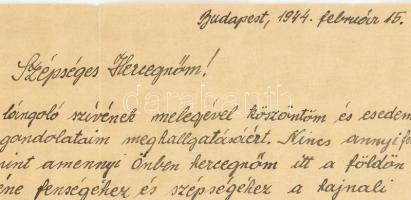 Budapest, 1944. február 15.
Szépséges Hercegnőm!
lángoló szívének melegével köszöntöm és esedem
gondolataim meghallgatásáért. Nincs annyi
mint amennyi Önben hercegnőm itt a földön
fenségéhez és szépségéhez a hajnali